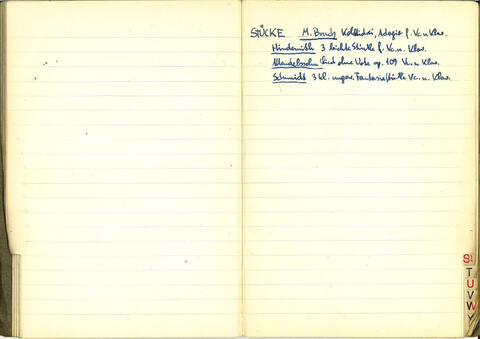 STÜCKE M. Bruch Kol Nidrei, Adagio f. Vc. u. Klav.
Hindemith 3 leichte Stücke f. Vc. u. Klav.
Mendelssohn Lied ohne Worte op. 109 Vc. u. Klav.
Schmidt 3 kl. ungar. Fantasiestücke Vc. u. Klav.
St
T
U
V
W
Y